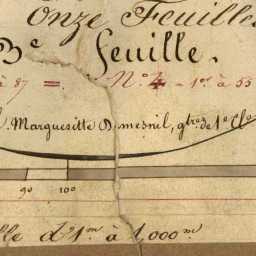 Onze Feuilles
Be feuille.
à 87 = . No 4 - 1er à 55
Marguesitte Dumesnil, gtres de 1e Cl
90 100
lle d'1m à 1,000m.